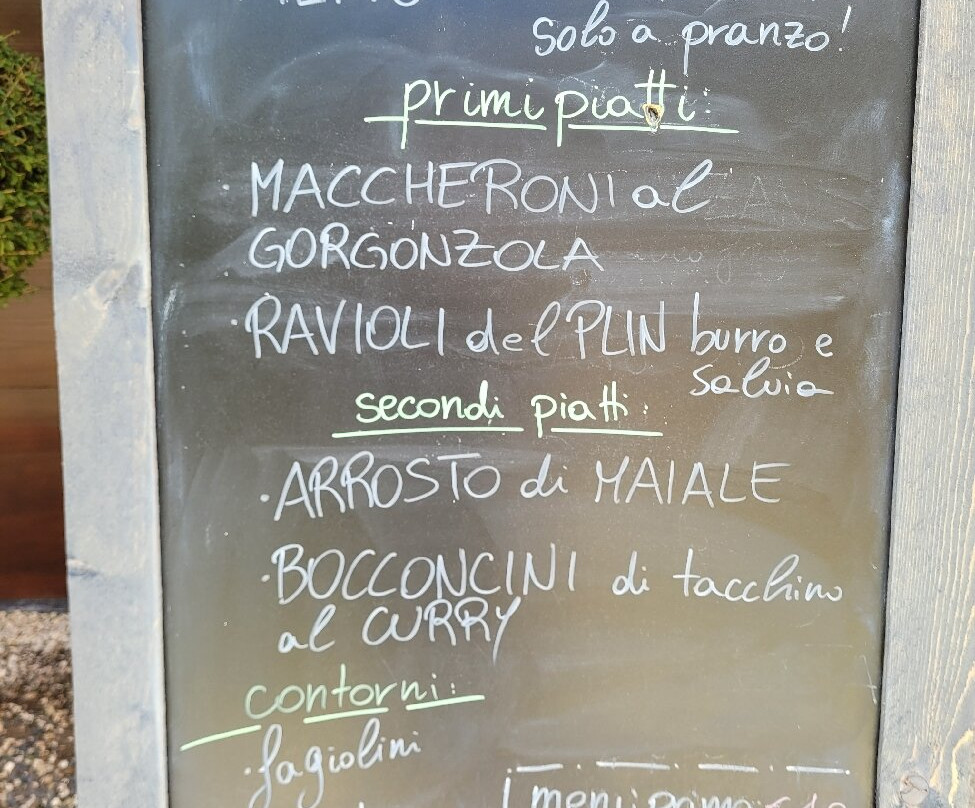 solo a pranzo!
primi piatti:
· MACCHERONI al
GORGONZOLA
· RAVIOLI del PLIN burro e
salvia
secondi piatti:
· ARROSTO di MAIALE
· BOCCONCINI di tacchino
al CURRY
contorni:
· fagiolini